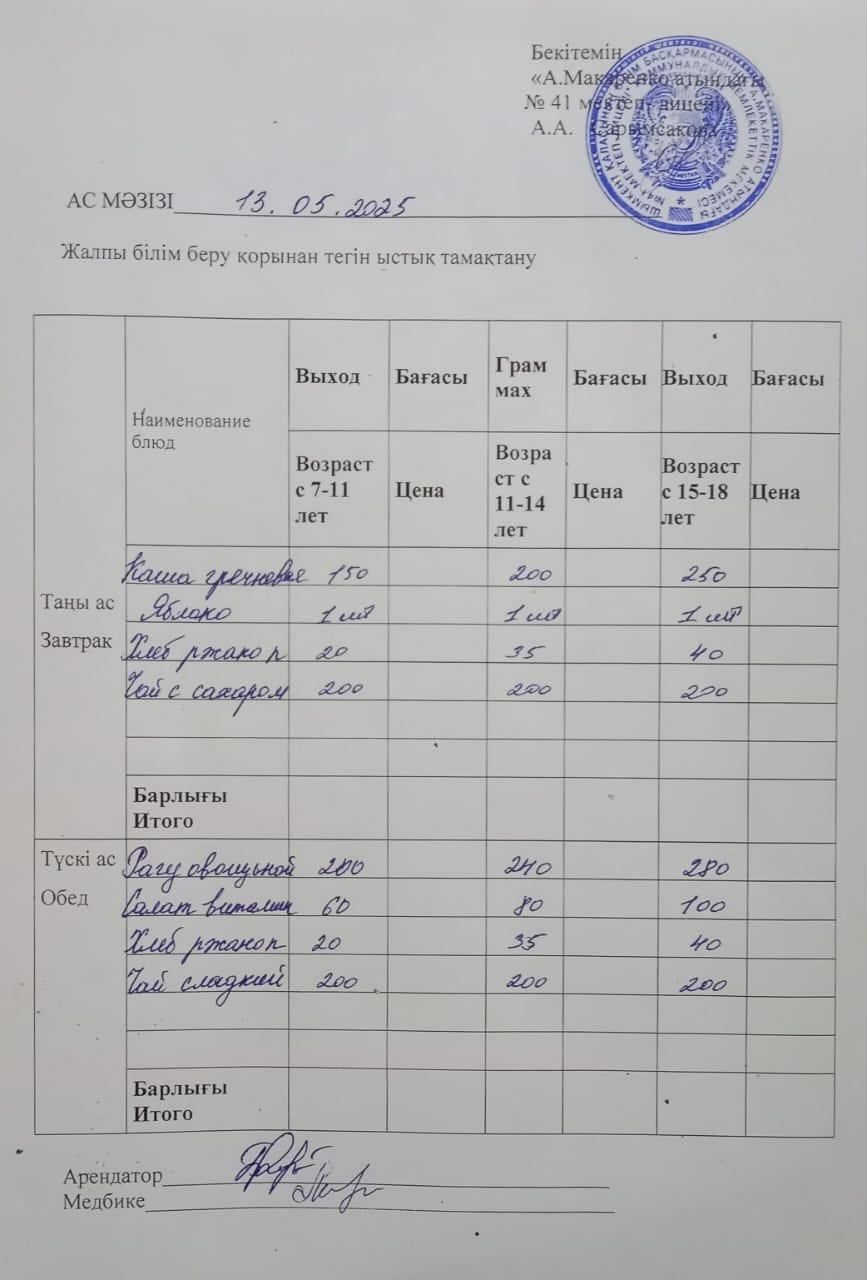 Бекітемін
«А.Макаренко атындағы
№ 41 мектеп- лицейі»
А.А. Сарымсакова
АС МӘЗІЗІ 13.05.2025
Жалпы білім беру қорынан тегін ыстық тамақтану
Наименование блюд
Выход Бағасы Грам мах Бағасы Выход Бағасы
Возраст с 7-11 лет Цена Возра ст с 11-14 лет Цена Возраст с 15-18 лет Цена
Таңы ас
Завтрак
Каша гречневая 150 200 250
Яблоко 1 шт 1 шт 1 шт
Хлеб ржаной 20 35 40
Чай с сахаром 200 200 200
Барлығы
Итого
Түскі ас
Обед
Рагу овощьной 200 240 280
Салат витамин 60 80 100
Хлеб ржаной 20 35 40
Чай сладкий 200 200 200
Барлығы
Итого
Арендатор
Медбике